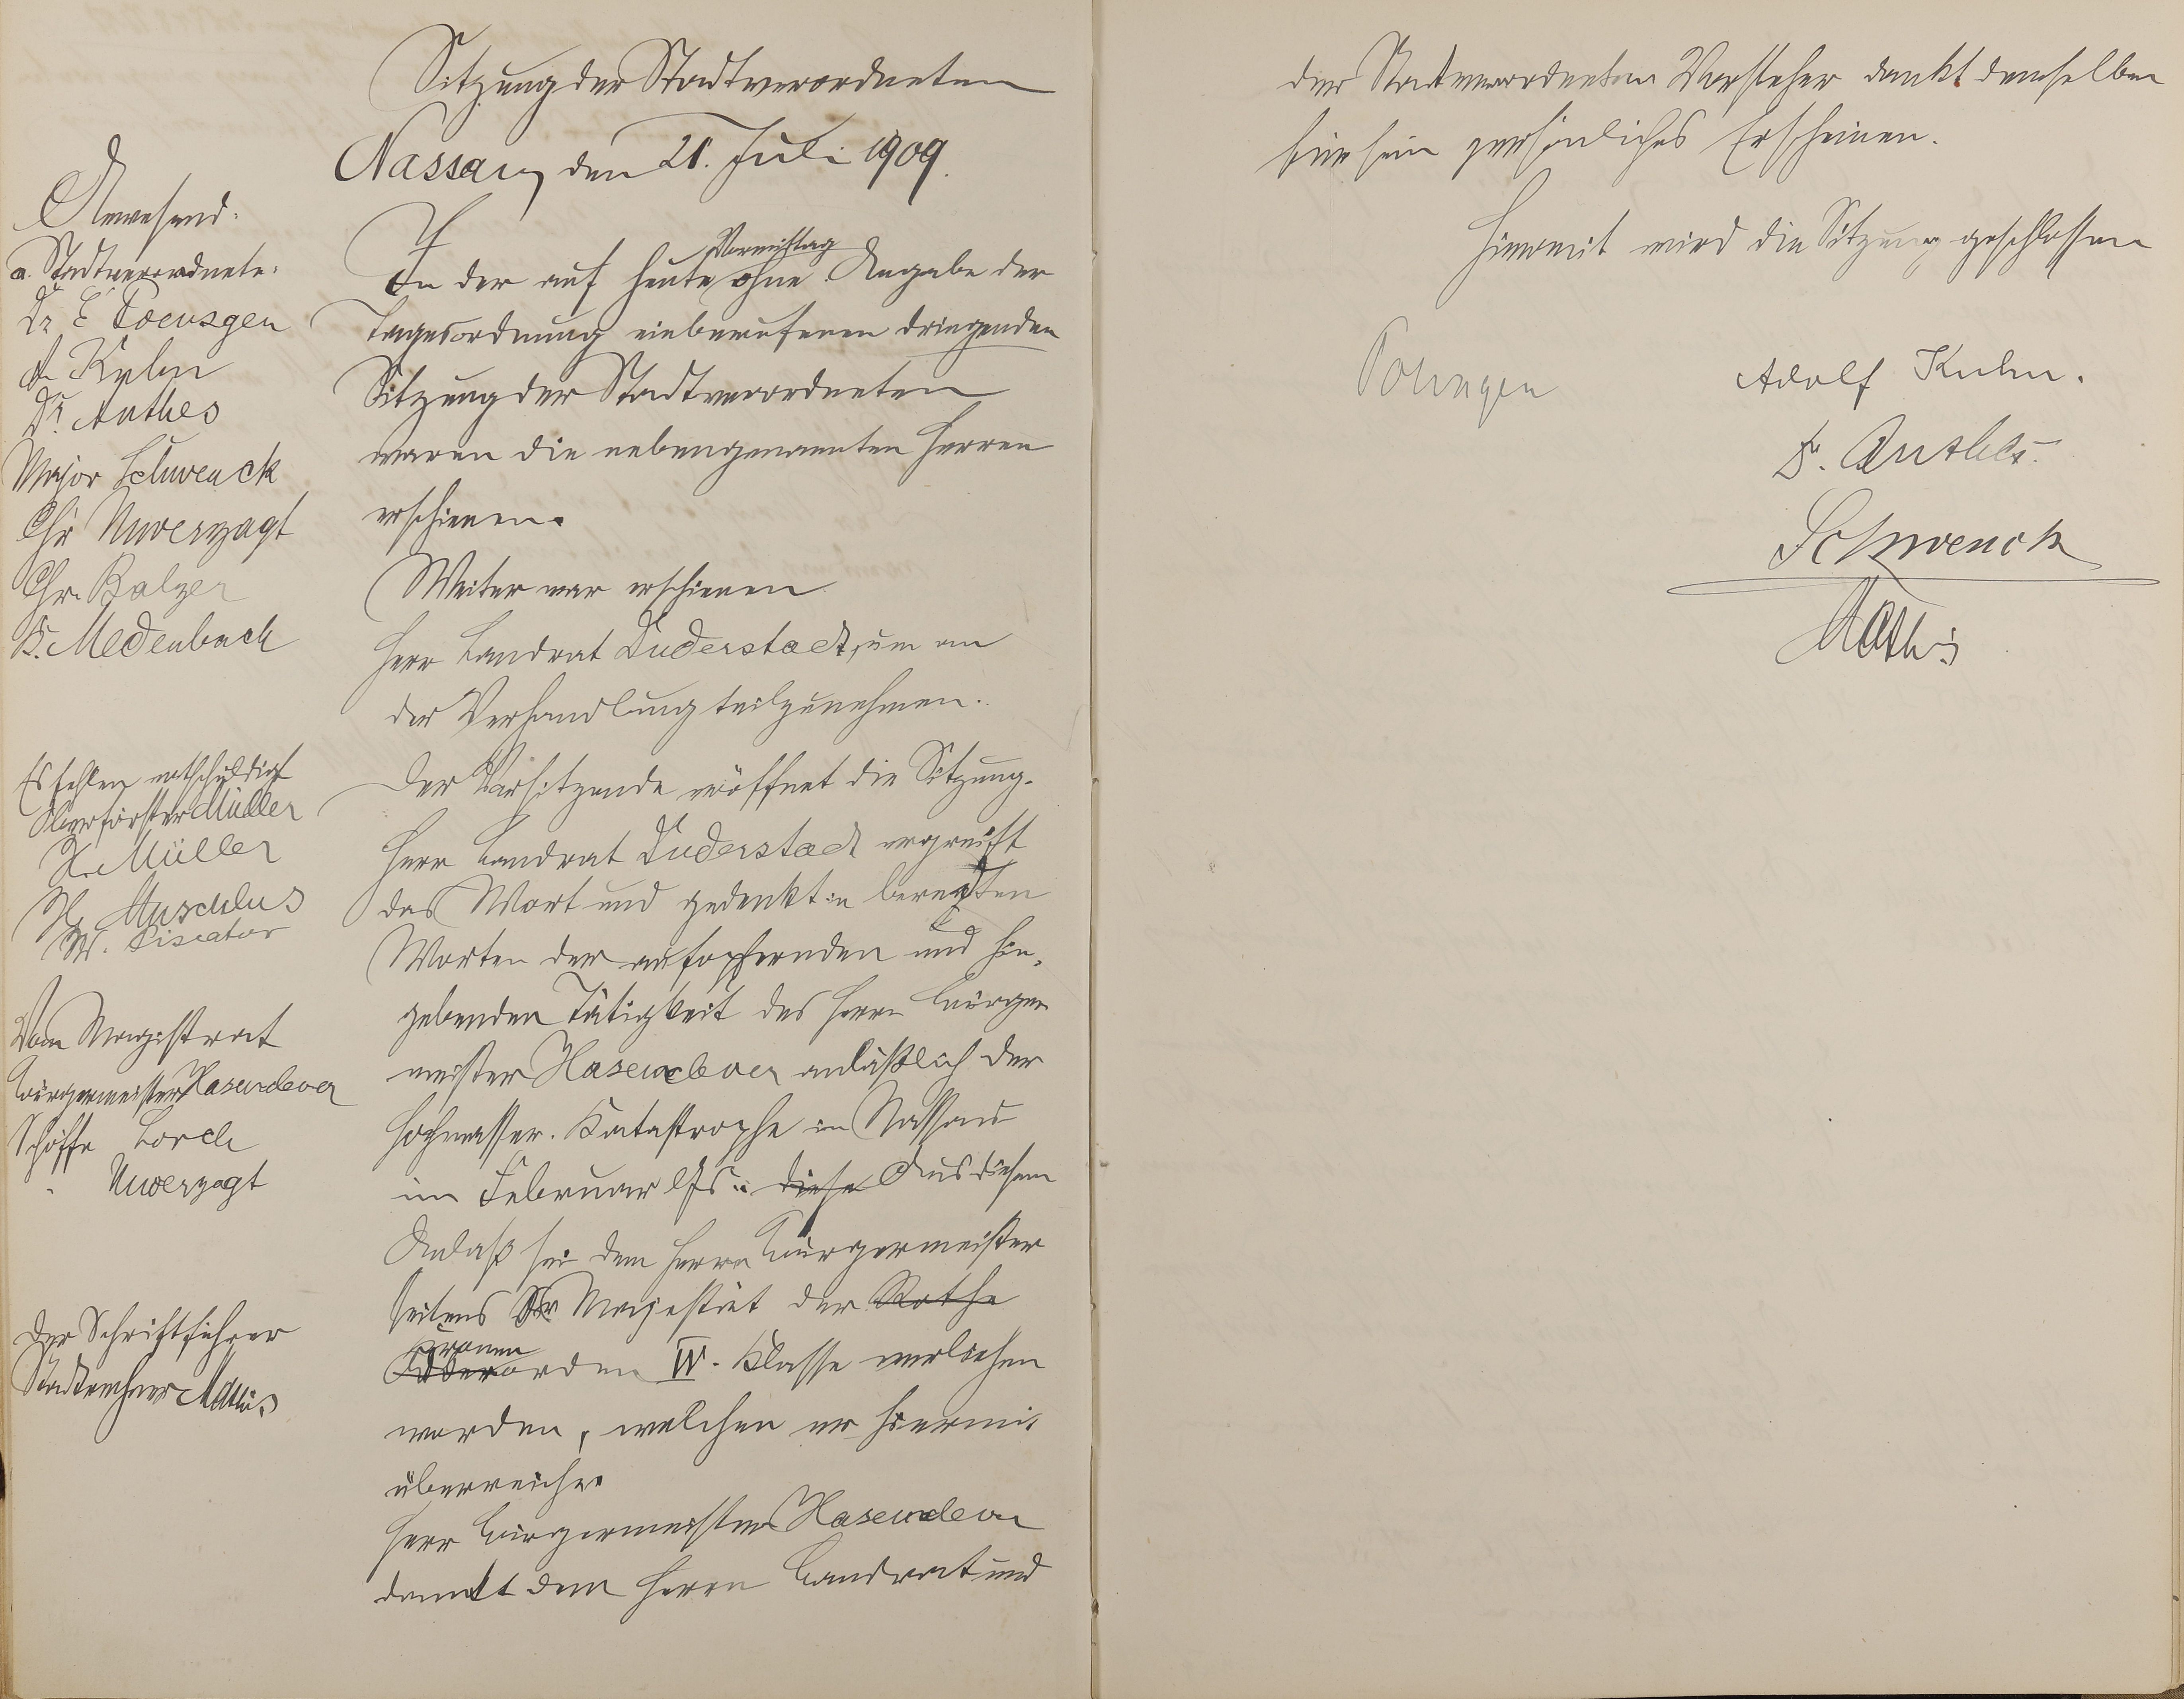 Sitzung der Stadtverordneten
Nassau, den 21. Juli 1909.
Anwesend:
a. Stadtverordnete:
Dr. E. Poensgen
A. Kuhn
Dr. Anthes
Major Schwenck
Chr. Unverzagt
Chr. Balzer
K. Medenbach
Es fehlen entschuldigt
Oberförster Müller
Müller
W. Piscator
Vom Magistrat
Bürgermeister Hasenclever
Schöffe Lorch
" Unverzagt
Der Schriftführer
Stadtrechner Mathis
Vormittag
In der auf heute ohne Angabe der
Tagesordnung einberufenen dringenden
Sitzung der Stadtverordneten
waren die nebengenannten Herren
erschienen.
Weiter war erschienen
Herr Landrat Duderstadt, um an
der Verhandlung teilzunehmen.
Der Vorsitzende eröffnet die Sitzung.
Herr Landrat Duderstadt ergreift
das Wort und gedenkt in beredten
Worten der aufopfernden und hin-
gebenden Tätigkeit des Herrn Bürger
meister Hasenclever anläßlich der
Hochwasser-Katastrophe in Nassau
im Februar lfs. diese Aus diesem
Anlaß sei dem Herrn Bürgermeister
seitens Sr Majestät der Rothe
Kronen
Adlerorden IV. Klasse verliehen
worden, welchen er hiermit
überreiche.
Herr Bürgermeister Hasenclever
dankt dem Herrn Landrat und
der Stadtverordneten Vorsteher dankt demselben
für sein persönliches Erscheinen.
Hiermit wird die Sitzung geschlossen
Poensgen
Adolf Kuhn.
Dr. Anthes.
Schwenck
Mathis